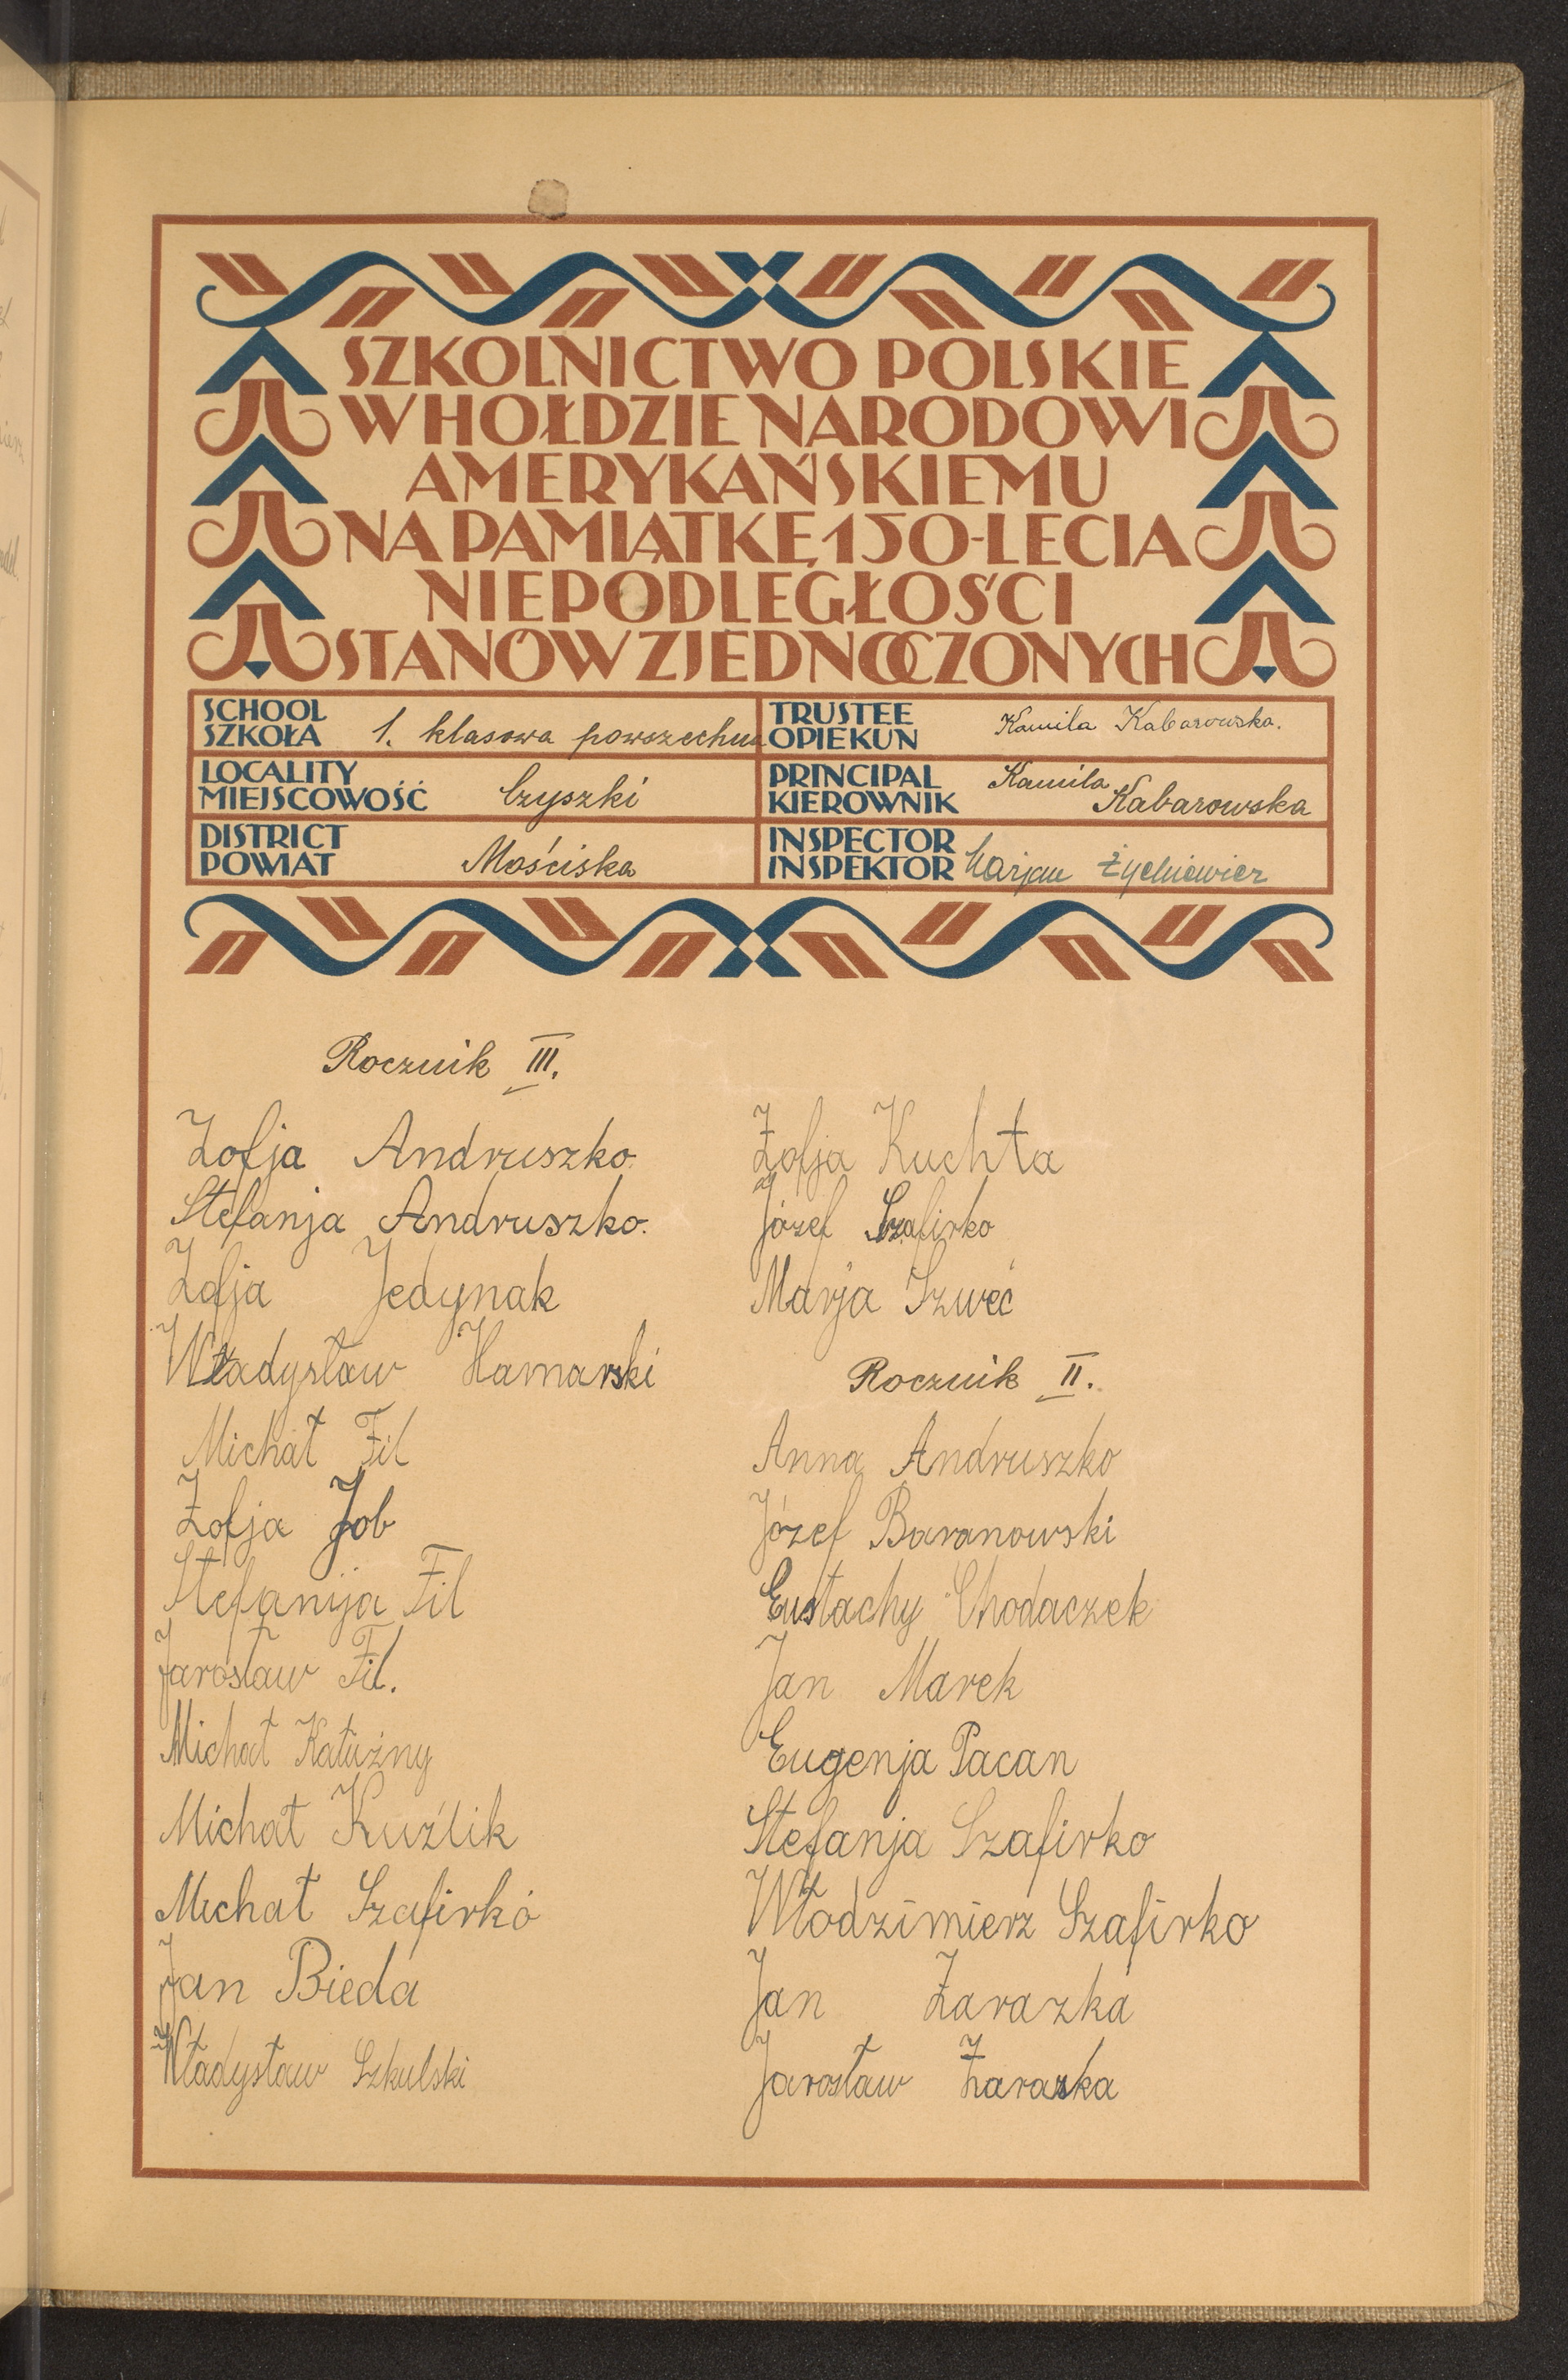 SZKOLNICTWO POLSKIE
W HOŁDZIE NARODOWI
AMERYKAŃSKIEMU
NA PAMIĄTKĘ 150-LECIA
NIEPODLEGŁOŚCI
STANÓW ZJEDNOCZONYCH
SCHOOL
SZKOŁA 1. klasowa powszechna
TRUSTEE
OPIEKUN Kamila Kabarowska.
LOCALITY
MIEJSCOWOŚĆ Czyszki
PRINCIPAL
KIEROWNIK Kamila Kabarowska
DISTRICT
POWIAT Mościska
INSPECTOR
INSPEKTOR Marjan Żychiewicz
Rocznik III.
Zofja Andruszko
Stefanja Andruszko.
Zofja Jedynak
Władysław Hamarski
Michał Fil
Zofja Job
Stefanija Fil
Jarosław Fil.
Michał Kałużny
Michał Kuźlik
Michał Szafirko
Jan Bieda
Władysław Szkulski
Zofja Kuchta
Józef Szafirko
Marja Szweć
Rocznik II.
Anna Andruszko
Józef Baranowski
Eustachy Chodaczek
Jan Marek
Eugenja Pacan
Stefanja Szafirko
Włodzimierz Szafirko
Jan Zarazka
Jarosław Zaraska